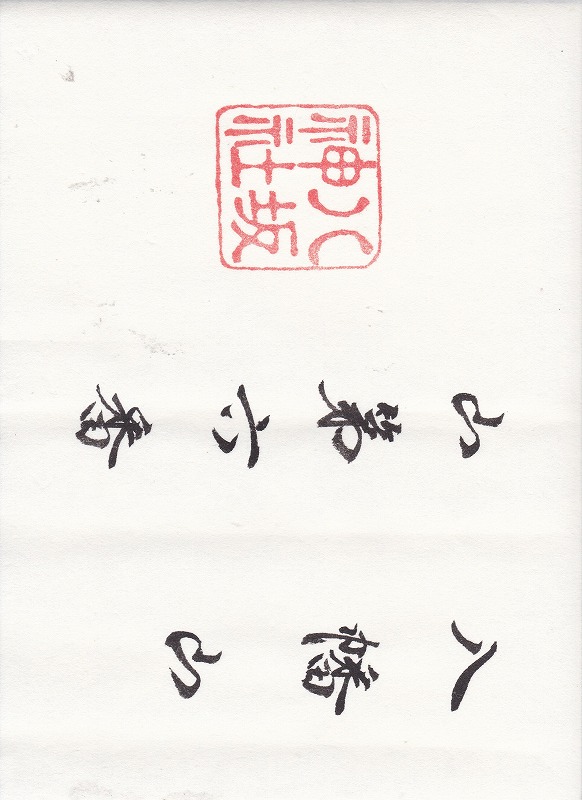 八幡山
山第六番
八坂
神社